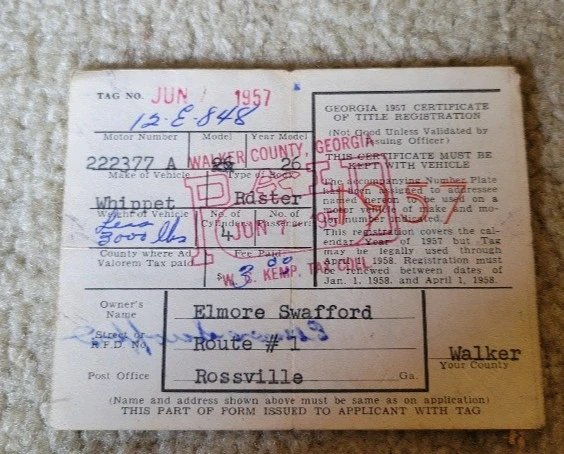 TAG NO. JUN 7 1957
12-E-848
Motor Number Model Year Model
222377 A 26
Make of Vehicle Type of Body
Whippet Rdster
Weight of Vehicle No. of Cylinders No. of Passengers
Less 3000 lbs 4
County where Ad Valorem Tax paid Fee Paid
$ 3.00
WALKER COUNTY, GEORGIA
PAID
JUN 7 1957
W. E. KEMP, TAX COLL.
GEORGIA 1957 CERTIFICATE
OF TITLE REGISTRATION
(Not Good Unless Validated by
Issuing Officer)
THIS CERTIFICATE MUST BE
KEPT WITH VEHICLE
The accompanying Number Plate
has been assigned to addressee
named hereon to be used on a
motor vehicle of make and mo-
tor number indicated.
This registration covers the cal-
endar Year of 1957 but Tag
may be legally used through
April 1, 1958. Registration must
be renewed between dates of
Jan. 1, 1958, and April 1, 1958.
Owner's Name Elmore Swafford
Street or R.F.D. No. Route # 1
Post Office Rossville Ga.
Walker
Your County
(Name and address shown above must be same as on application)
THIS PART OF FORM ISSUED TO APPLICANT WITH TAG